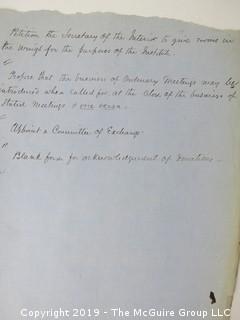 Petition the Secretary of the Interior to give room in
the wings for the purposes of the Institute.
"
Propose that the business of Ordinary Meetings may be
introduced when called for, at the close of the business of
Stated Meetings &
"
Appoint a Committee of Exchange
"
Blank form for acknowledgement of Donations.
Copyright 2019 - The McGuire Group LLC